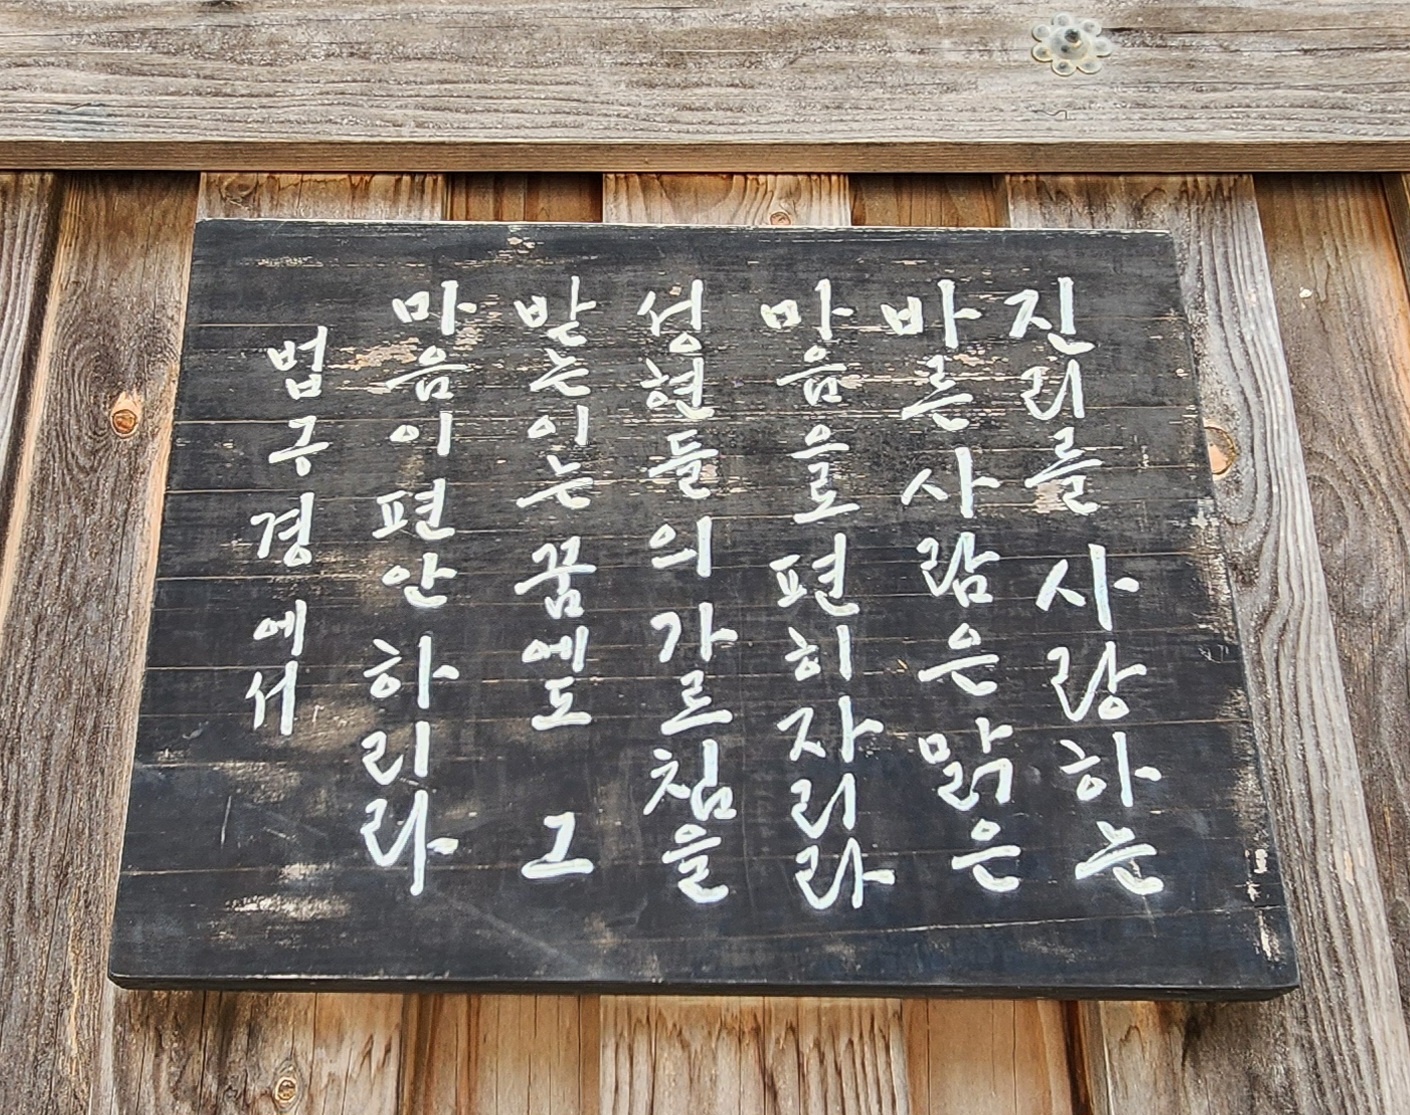 진리를 사랑하는
바른 사람은 맑은
마음으로 편히 자리라
성현들의 가르침을
받는 이는 꿈에도 그
마음이 편안하리라
법구경에서